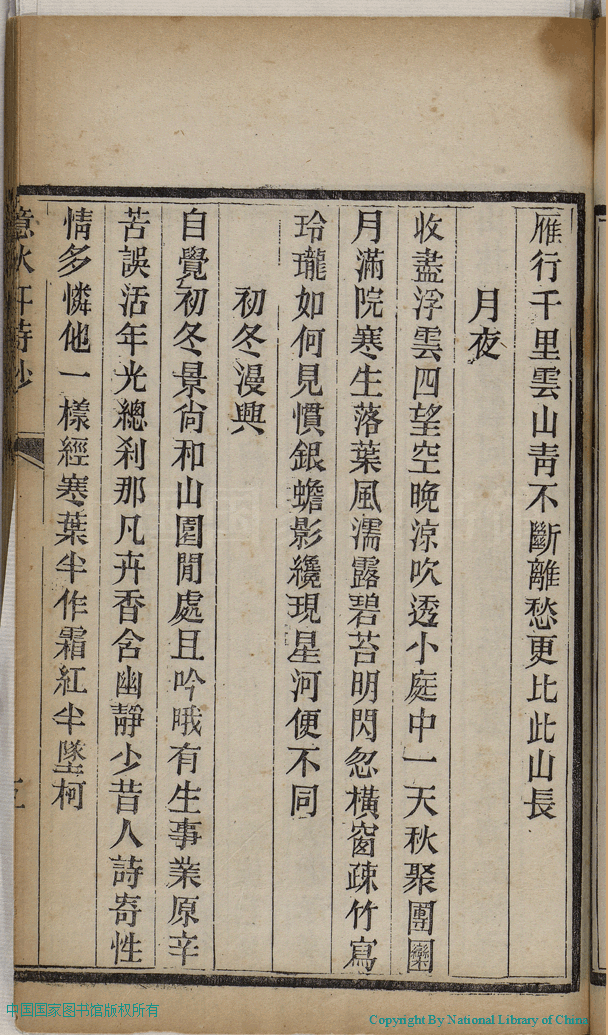 雁行千里雲山靑不斷離愁更比此山長
月夜
收盡浮雲四望空晚涼吹透小庭中一天秋聚團圞
月滿院寒生落葉風濡露碧苔明閃忽橫窗疎竹寫
玲瓏如何見慣銀蟾影纔現星河便不同
初冬漫興
自覺初冬景尙和山園閒處且吟哦有生事業原辛
苦誤活年光總刹那凡卉香含幽靜少昔人詩寄性
情多憐他一樣經寒葉半作霜紅半墜柯
意秋軒詩鈔
中国国家图书馆版权所有
Copyright By National Library of China